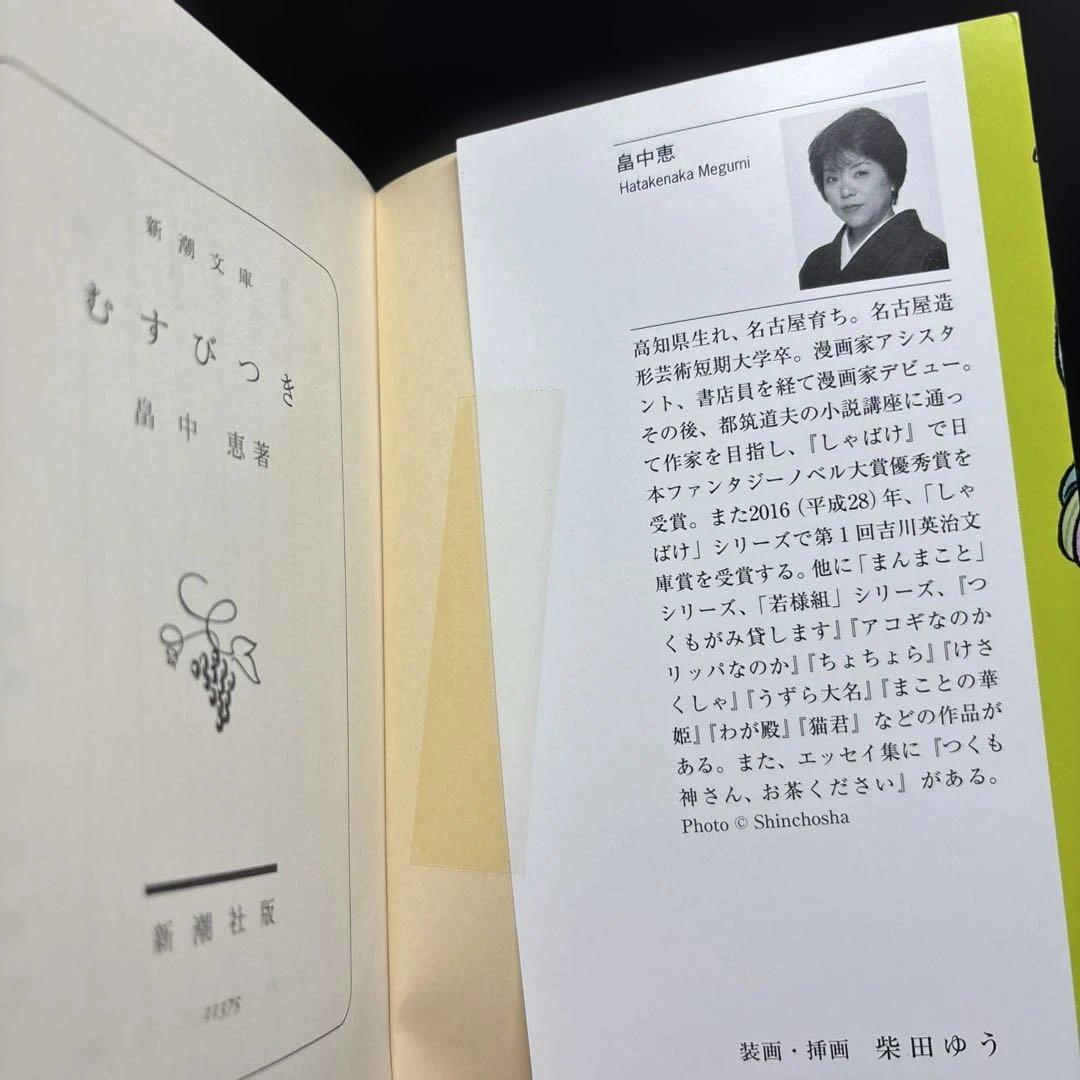 新潮文庫
むすびつき
畠中恵著
新潮社版
11375
畠中恵
Hatakenaka Megumi
高知県生れ、名古屋育ち。名古屋造
形芸術短期大学卒。漫画家アシスタ
ント、書店員を経て漫画家デビュー。
その後、都筑道夫の小説講座に通っ
て作家を目指し、『しゃばけ』で日
本ファンタジーノベル大賞優秀賞を
受賞。また2016（平成28）年、「しゃ
ばけ」シリーズで第1回吉川英治文
庫賞を受賞する。他に「まんまこと」
シリーズ、「若様組」シリーズ、『つ
くもがみ貸します』『アコギなのか
リッパなのか』『ちょちょら』『けさ
くしゃ』『うずら大名』『まことの華
姫』『わが殿』『猫君』などの作品が
ある。また、エッセイ集に『つくも
神さん、お茶ください』がある。
Photo © Shinchosha
装画・挿画 柴田ゆう